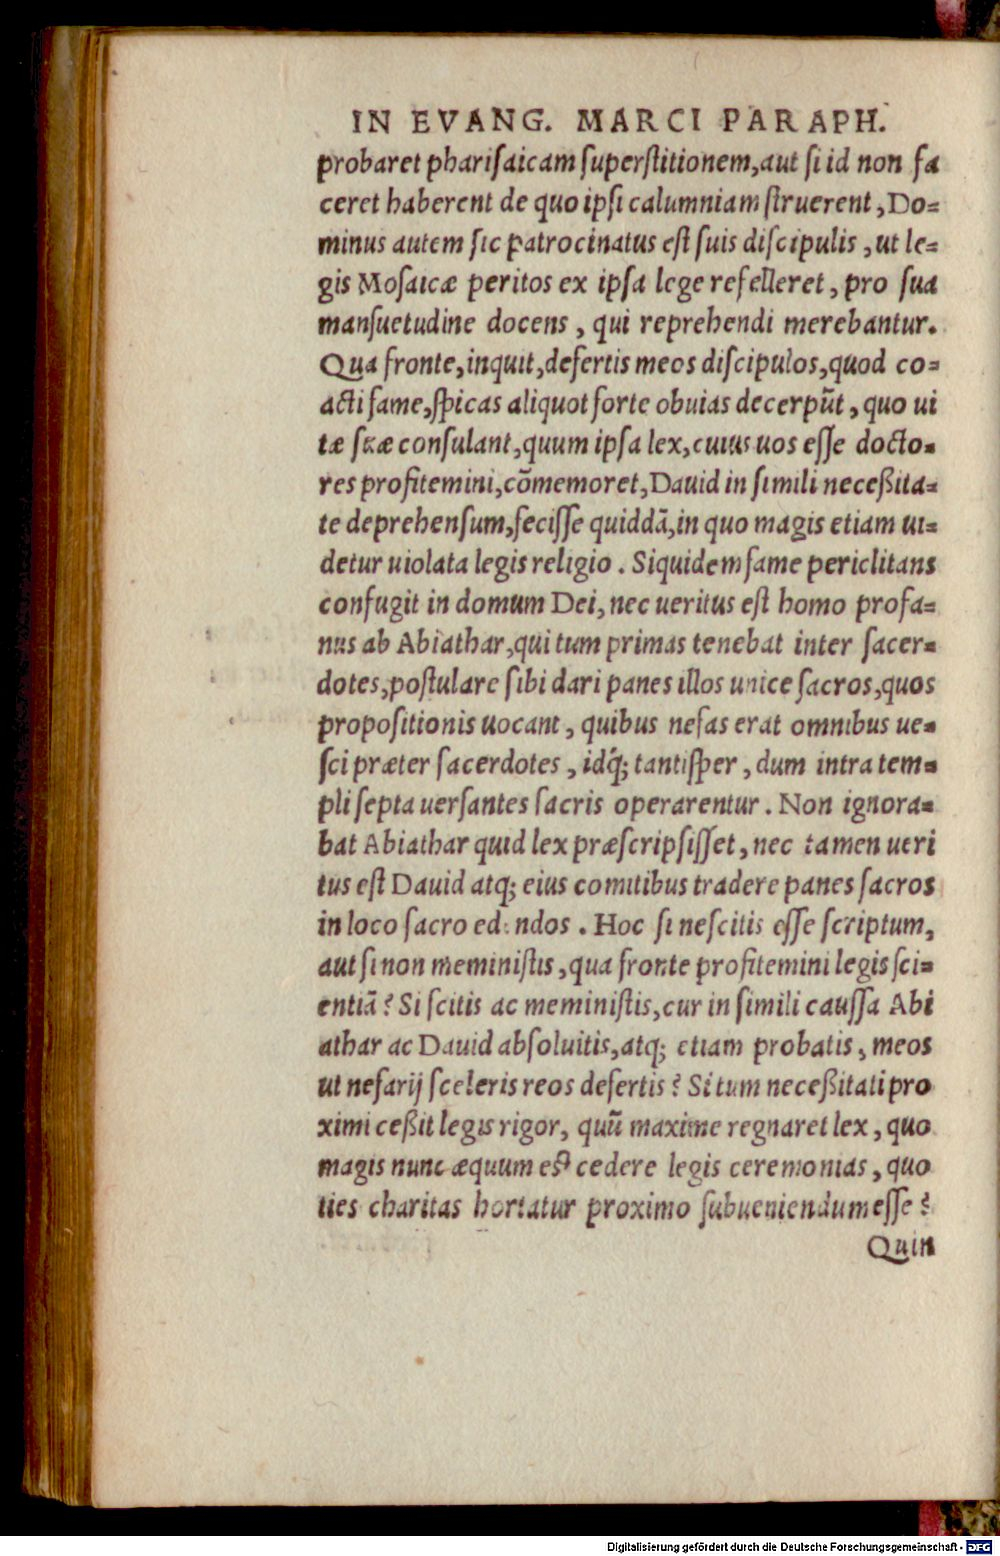 IN EVANG. MARCI PARAPH.
probaret pharisaicam superstitionem, aut si id non fa
ceret haberent de quo ipsi calumniam struerent, Do=
minus autem sic patrocinatus est suis discipulis, ut le=
gis Mosaicæ peritos ex ipsa lege refelleret, pro sua
mansuetudine docens, qui reprehendi merebantur.
Qua fronte, inquit, defertis meos discipulos, quod co=
acti fame, spicas aliquot forte obuias decerpūt, quo ui
tæ suæ consulant, quum ipsa lex, cuius uos esse docto=
res profitemini, cōmemoret, Dauid in simili neceßita=
te deprehensum, fecisse quiddā, in quo magis etiam ui=
detur uiolata legis religio. Siquidem fame periclitans
confugit in domum Dei, nec ueritus est homo profa=
nus ab Abiathar, qui tum primas tenebat inter sacer=
dotes, postulare sibi dari panes illos unice sacros, quos
propositionis uocant, quibus nefas erat omnibus ue=
sci præter sacerdotes, idq́; tantisper, dum intra tem=
pli septa uersantes sacris operarentur. Non ignora=
bat Abiathar quid lex præscripsisset, nec tamen ueri
tus est Dauid atq; eius comitibus tradere panes sacros
in loco sacro edendos. Hoc si nescitis esse scriptum,
aut si non meministis, qua fronte profitemini legis sci=
entiā? Si scitis ac meministis, cur in simili caussa Abi
athar ac Dauid absoluitis, atq; etiam probatis, meos
ut nefarij sceleris reos defertis? Si tum neceßitati pro
ximi ceßit legis rigor, quū maxime regnaret lex, quo
magis nunc æquum est cedere legis ceremonias, quo
ties charitas hortatur proximo subueniendum esse?
Quin
Digitalisierung gefördert durch die Deutsche Forschungsgemeinschaft - DFG